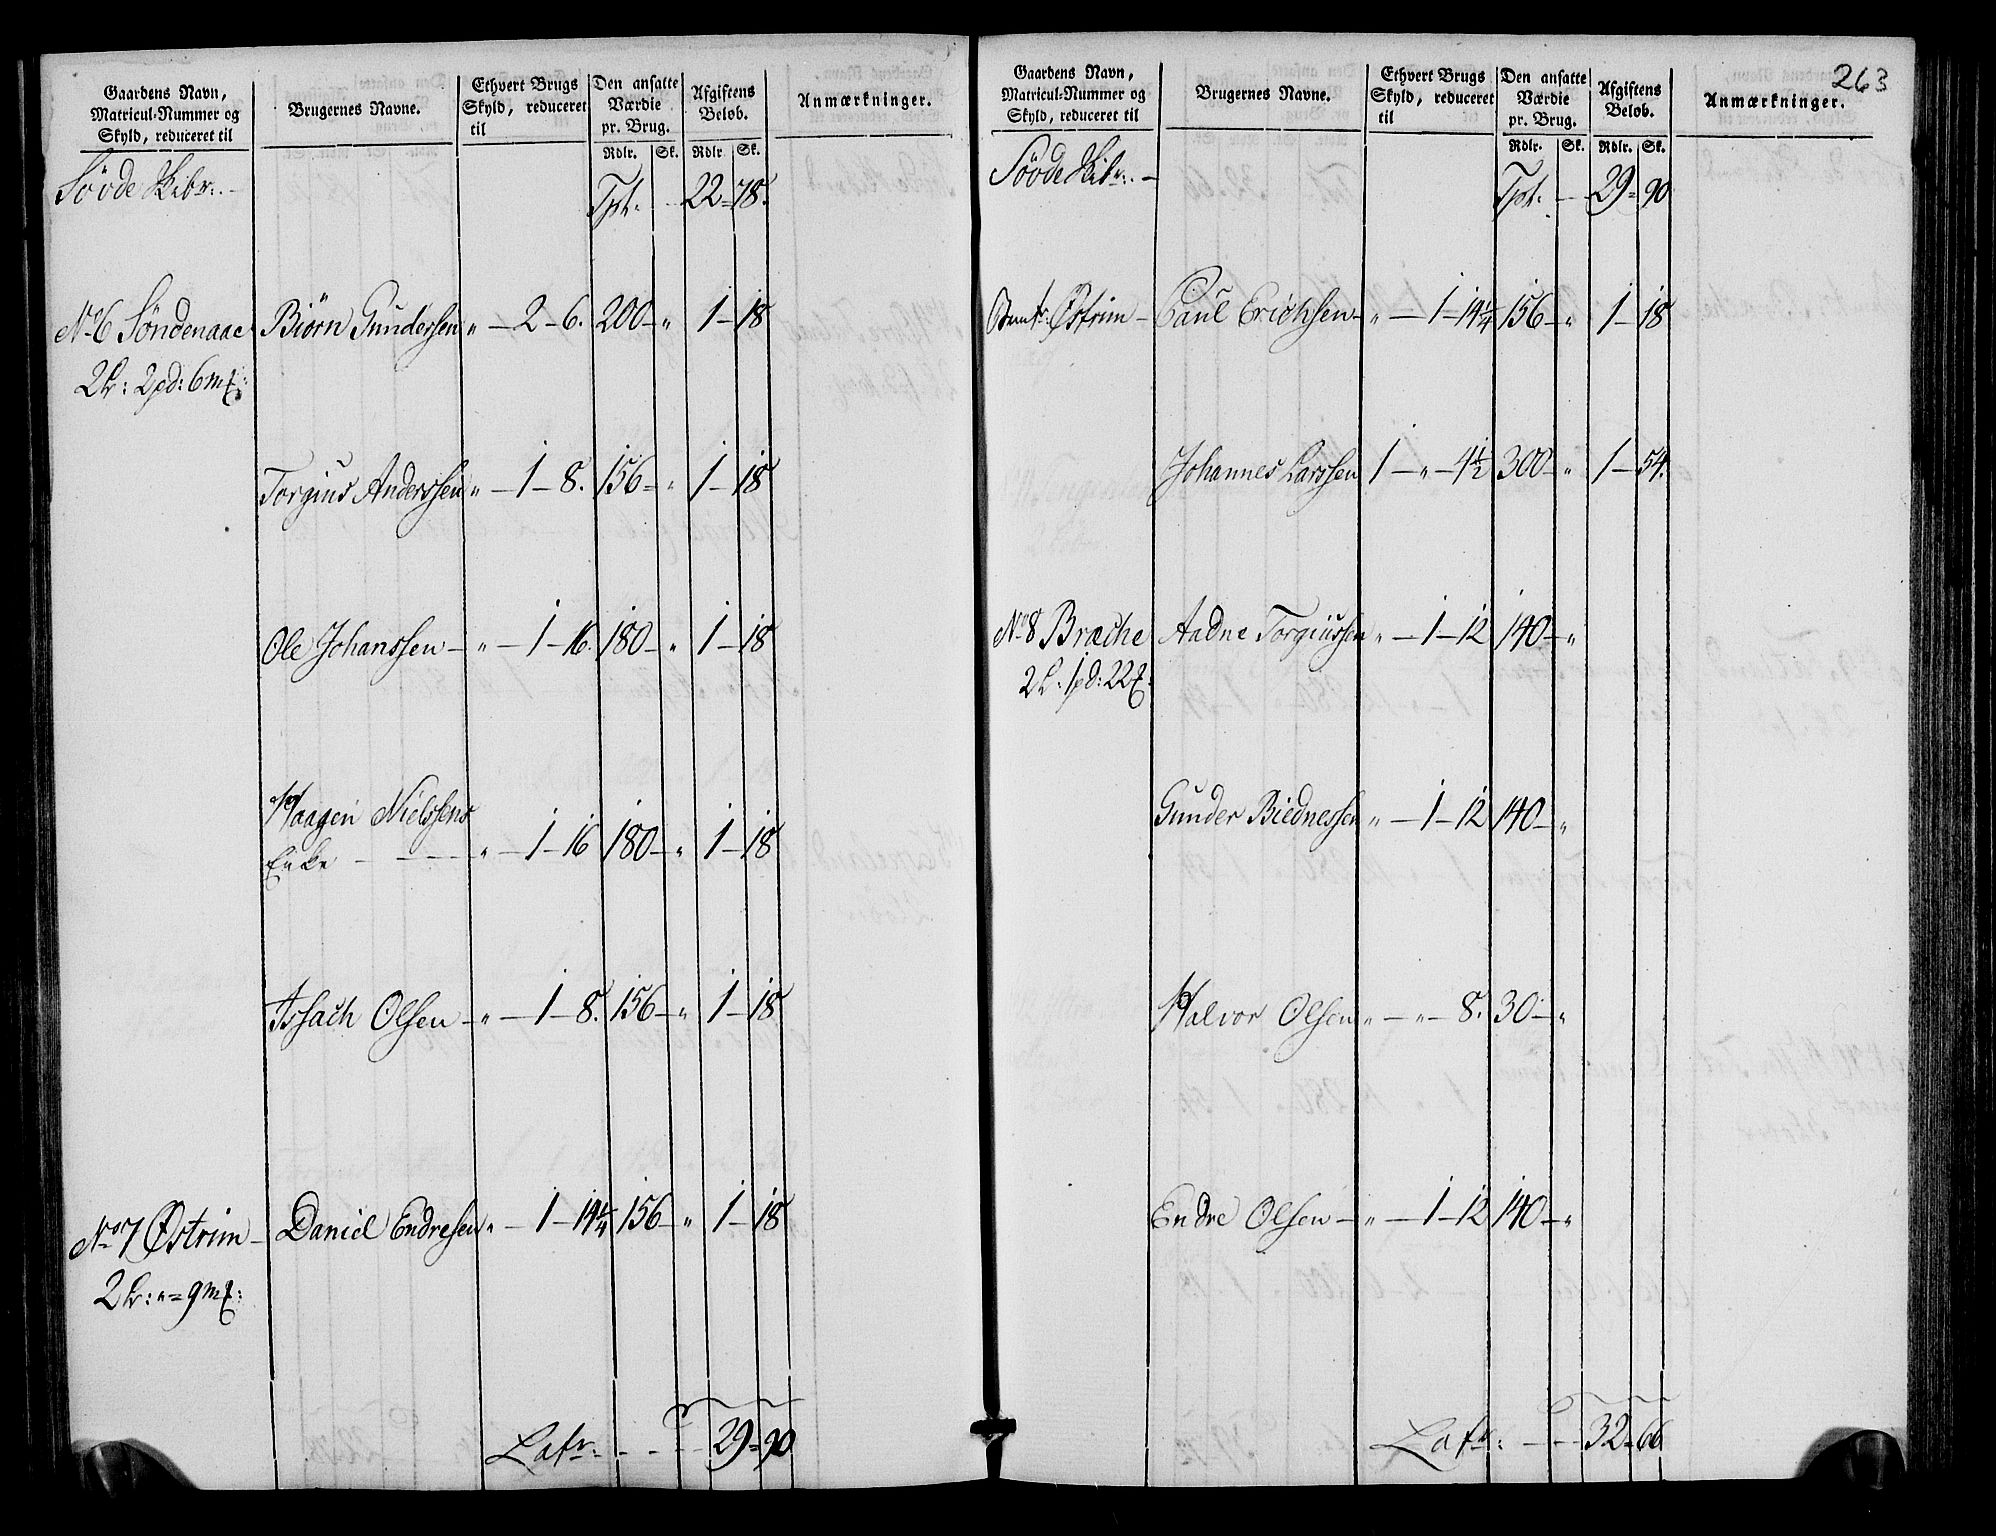 Gaardens Navn,
Matricul-Nummer og
Skyld, reduceret til
Brugernes Navne.
Ethvert Brugs
Skyld, reduceret
til
Den ansatte
Værdie
pr. Brug.
Afgiftens
Beløb.
Anmærkninger.
Rdlr. Sk. Rdlr. Sk.
Søvde Skibr: -
Tpt. - 22 - 78.
No 6 Søndenaae Biørn Gunderssen " - 2 - 6. 200 - " 1 - 18
2 lr: 2 pd: 6 mk:
Torgius Anderssen " - 1 - 8. 156 - " 1 - 18
Ole Johanssen - " - 1 - 16. 180 - " 1 - 18
Haagen Nielssens
Enke - - - - " - 1 - 16 180 - " 1 - 18
Issach Olsen - " - 1 - 8. 156 - " 1 - 18
No 7 Østrim - Daniel Endresen " - 1 - 14 1/4 156 - " 1 - 18
2 lr: " = 9 mk:
Latr: - - - 29 = 90
263
Gaardens Navn,
Matricul-Nummer og
Skyld, reduceret til
Brugernes Navne.
Ethvert Brugs
Skyld, reduceret
til
Den ansatte
Værdie
pr. Brug.
Afgiftens
Beløb.
Anmærkninger.
Rdlr. Sk. Rdlr. Sk.
Søvde Skibr: -
Tpt. - 29 - 90
Østrim - Paul Erichsen - " - 1 - 14 1/4 156 - " 1 - 18
Johannes Larssen 1 - " - 4 1/2 300 - " 1 - 54.
No 8 Bræche Aadne Torgiussen " - 1 - 12 140 - "
2 l: 1 pd: 22
Gunder Biednessen " - 1 - 12 140 - "
Halvor Olsen " - " - 8. 30 - "
Endre Olsen - " - 1 - 12 140 - "
Latr: - - - 32 - 66